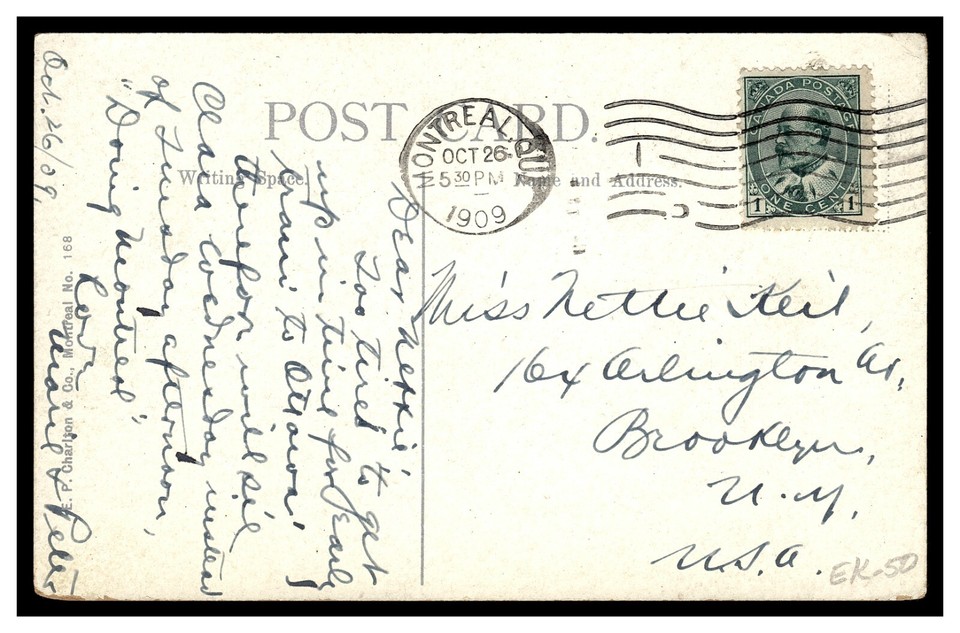 POST CARD.
Writing Space.
Name and Address.
MONTREAL, QUE
OCT 26
5 30 PM
1909
CANADA POSTAGE
1 ONE CENT 1
Oct. 26/09,
Dear Nettie,
Too tired to get
up in time for early
train to Ottawa,
therefore will see
Clara Wednesday instead
of Tuesday afternoon,
"Doing Montreal",
Love
Marie & Peter
Miss Nettie Keil,
164 Arlington Av,
Brooklyn,
N.Y,
U.S.A.
EK-50
E. P. Charlton & Co., Montreal No. 168